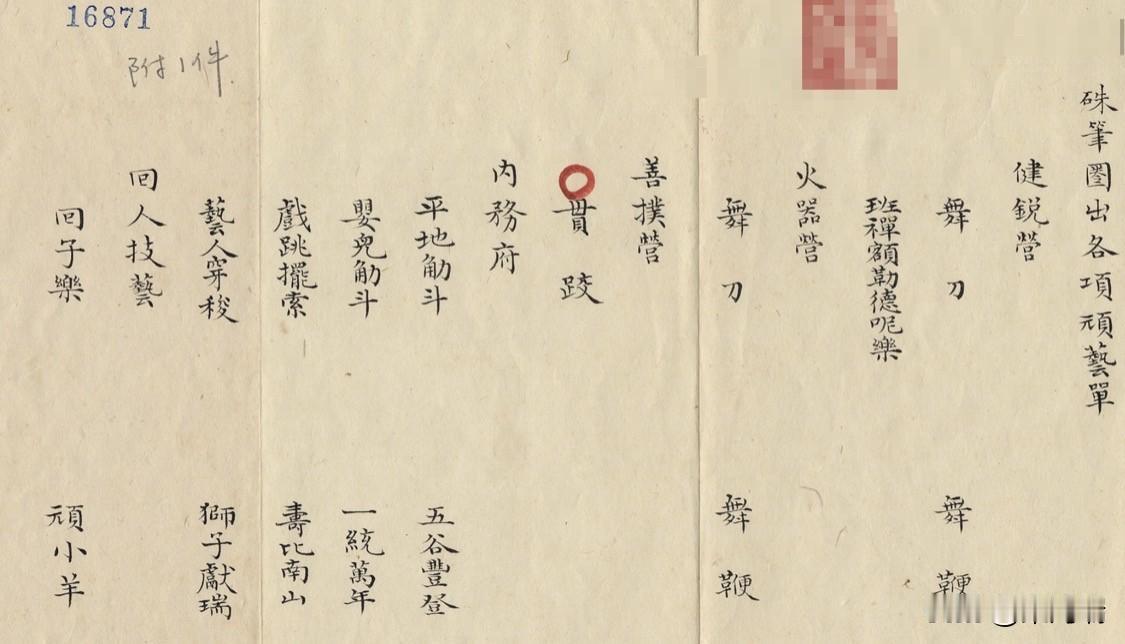 16871
附1件
硃筆圈出各項頑藝單
健銳營
舞刀 舞鞭
班禪額勒德呢樂
火器營
舞刀 舞鞭
善撲營
貫跤
內務府
平地觔斗 五谷豐登
嬰兒觔斗 一統萬年
戲跳擺索 壽比南山
藝人穿梭 獅子獻瑞
回人技藝
回子樂 頑小羊